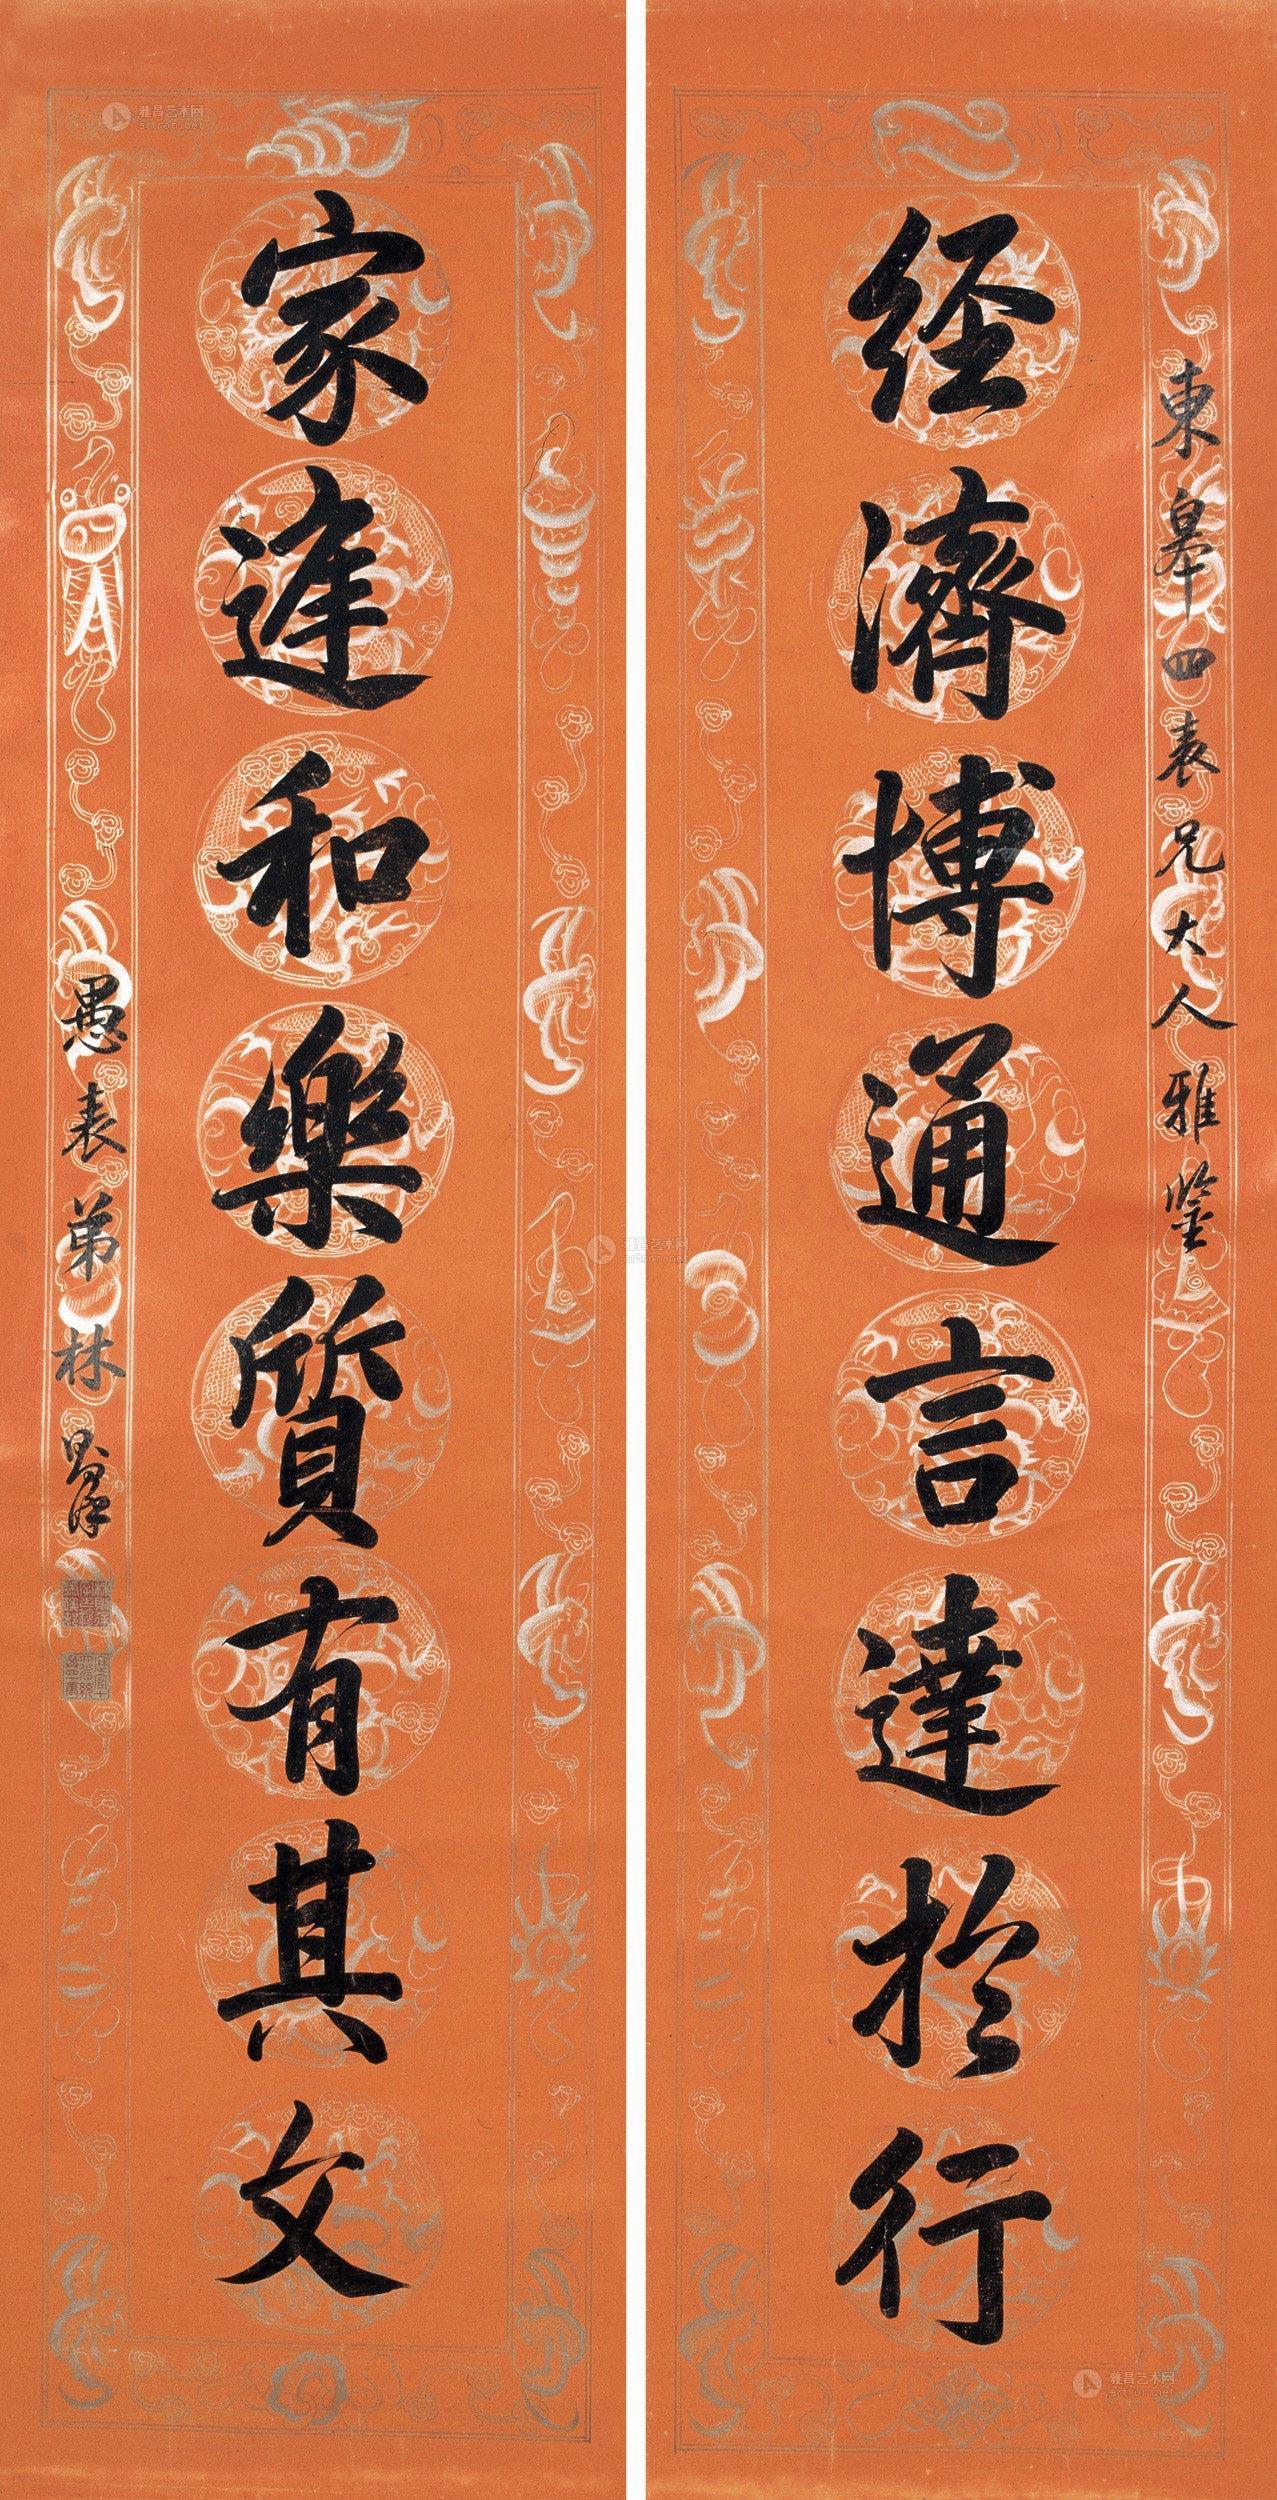 東皋四表兄大人雅鑒
經濟博通言達於行
家進和樂質有其文
愚表弟林則徐
雅昌艺术网
artron.net
雅昌艺术网
artron.net
雅昌艺术网
artron.net